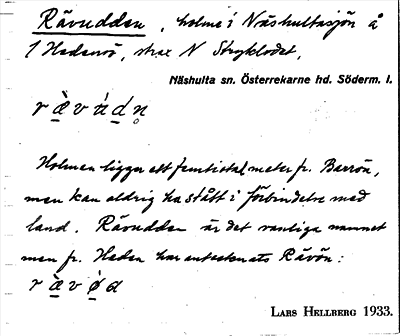 Rävudden, holme i Näshultasjön å
1 Hedenö, strax N Stryklodet,
Näshulta sn. Österrekarne hd. Söderm. l.
r ä̀ v ù̀ d n̥
Holmen ligger ett femtiotal meter fr. Barrön,
men kan aldrig ha stått i förbindelse med
land. Rävudden är det vanliga namnet
men fr. Heden har antecknats Rävön:
r ä̀ v ø̀ a
LARS HELLBERG 1933.